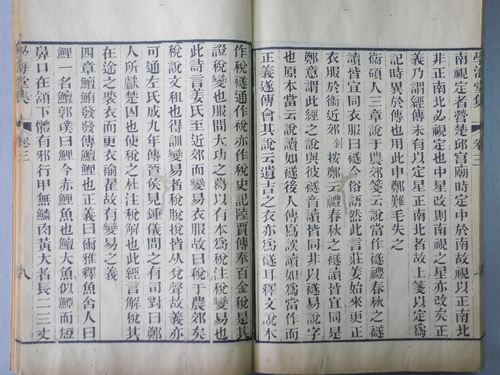 學海堂集 卷三
南視定者營楚邱宮廟時定中於南故視以正南北
非正南北必視定也中星改則南視之星亦改矣正
義乃謂經傳未有以定星正南北者故上箋以定爲
記時異於傳也用此申鄭難毛失之
衞碩人三章說于農郊箋云說當作襚禮春秋之襚
讀皆宜同衣服曰襚今俗語然此言莊姜始來更正
衣服於衞近郊 按鄭云禮春秋之襚讀皆宜同是
鄭意謂此經之說與彼襚音讀皆同非以襚易說字
也原本當云說讀如襚後人傳寫誤讀如爲當作而
正義遂傅會其說云遺吉之衣亦爲襚耳釋文說本
作稅襚通作說亦作稅史記陸賈傳奉百金稅是其
證稅變也服問大功之葛以有本爲稅注稅變易也
此詩言姜氏至近郊而變易衣服故曰稅于農郊矣
稅說文租也得訓變易者稅脫挩皆从兌聲故義亦
可通左氏成九年傳晉侯見鍾儀問之有司對曰鄭
人所獻楚囚也使稅之杜注稅解也此經言稅其
在途之衣而更衣褕翟故有變易之義
四章鱣鮪發發傳鱣鯉也正義曰爾雅釋魚舍人曰
鯉一名鱣郭璞曰鯉今赤鯉魚也鱣大魚似鱏而短
鼻口在頷下體有邪行甲無鱗肉黃大者長二三丈
學海堂集 卷三